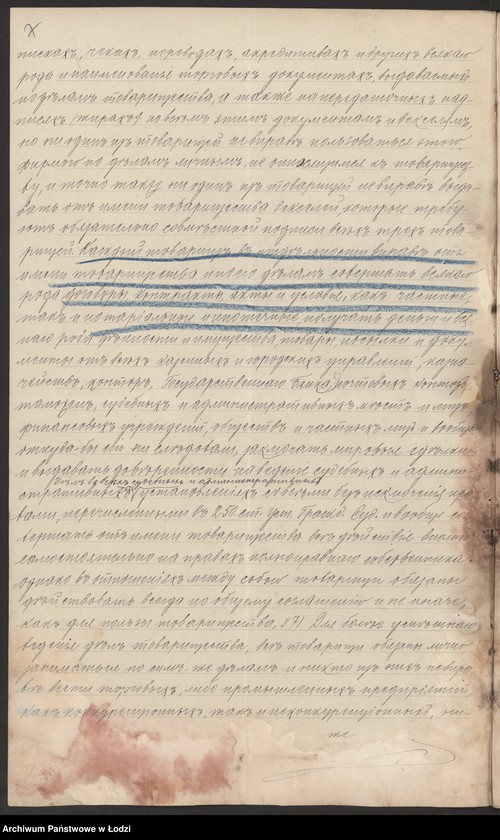 пискахъ, чекахъ, переводахъ, аккредитивахъ и другихъ всякаго
рода и наименованія торговыхъ документахъ, выдаваемыхъ
по дѣламъ товарищества, а также на передаточныхъ над-
писяхъ (жирахъ) по всѣмъ этимъ документамъ и векселямъ,
но ни одинъ изъ товарищей не вправѣ пользоваться этою
фирмою по дѣламъ личнымъ, не относящимся къ товарищест-
ву, и точно также ни одинъ изъ товарищей не вправѣ выда-
вать отъ имени товарищества векселей которые требу-
ютъ обязательно совмѣстной подписи всѣхъ трехъ това-
рищей. Каждый товарищъ въ отдѣльности вправѣ отъ
имени товарищества и по его дѣламъ совершать всякаго
рода договоры, контракты, акты и условія, какъ частные,
такъ и нотаріальные и ипотечные, получать деньги и вся-
каго рода цѣнности и имущества, товары, посылки и доку-
менты отъ всѣхъ казенныхъ и городскихъ управленій, казна-
чействъ, конторъ, Государственнаго Банка, почтовыхъ конторъ,
таможенъ, судебныхъ и административныхъ мѣстъ и лицъ,
финансовыхъ учрежденій, обществъ и частныхъ лицъ и вообще
откуда бы сіе ни слѣдовало, заключать мировыя сдѣлки
и выдавать довѣренности на веденіе судебныхъ и админи-
стративныхъ
дѣлъ во всѣхъ судебныхъ и административныхъ
установленіяхъ со всѣми безъ исключенія пра-
вами, перечисленными въ 250 ст. Уст. Гражд. Суд. и вообще со-
вершать отъ имени товарищества всѣ дѣйствія вполнѣ
самостоятельно на правахъ полноправнаго собственника.
Однако въ отношеніяхъ между собою товарищи обязаны
дѣйствовать всегда по общему соглашенію и не иначе,
какъ для пользы товарищества. 7) Для болѣе успѣшнаго
веденія дѣлъ товарищества, всѣ товарищи обязаны лично
заниматься по симъ же дѣламъ и никто изъ нихъ не впра-
вѣ вести торговыхъ, либо промышленныхъ предпріятій,
какъ конкурренціонныхъ, такъ и неконкурренціонныхъ, ни-
же
Archiwum Państwowe w Łodzi